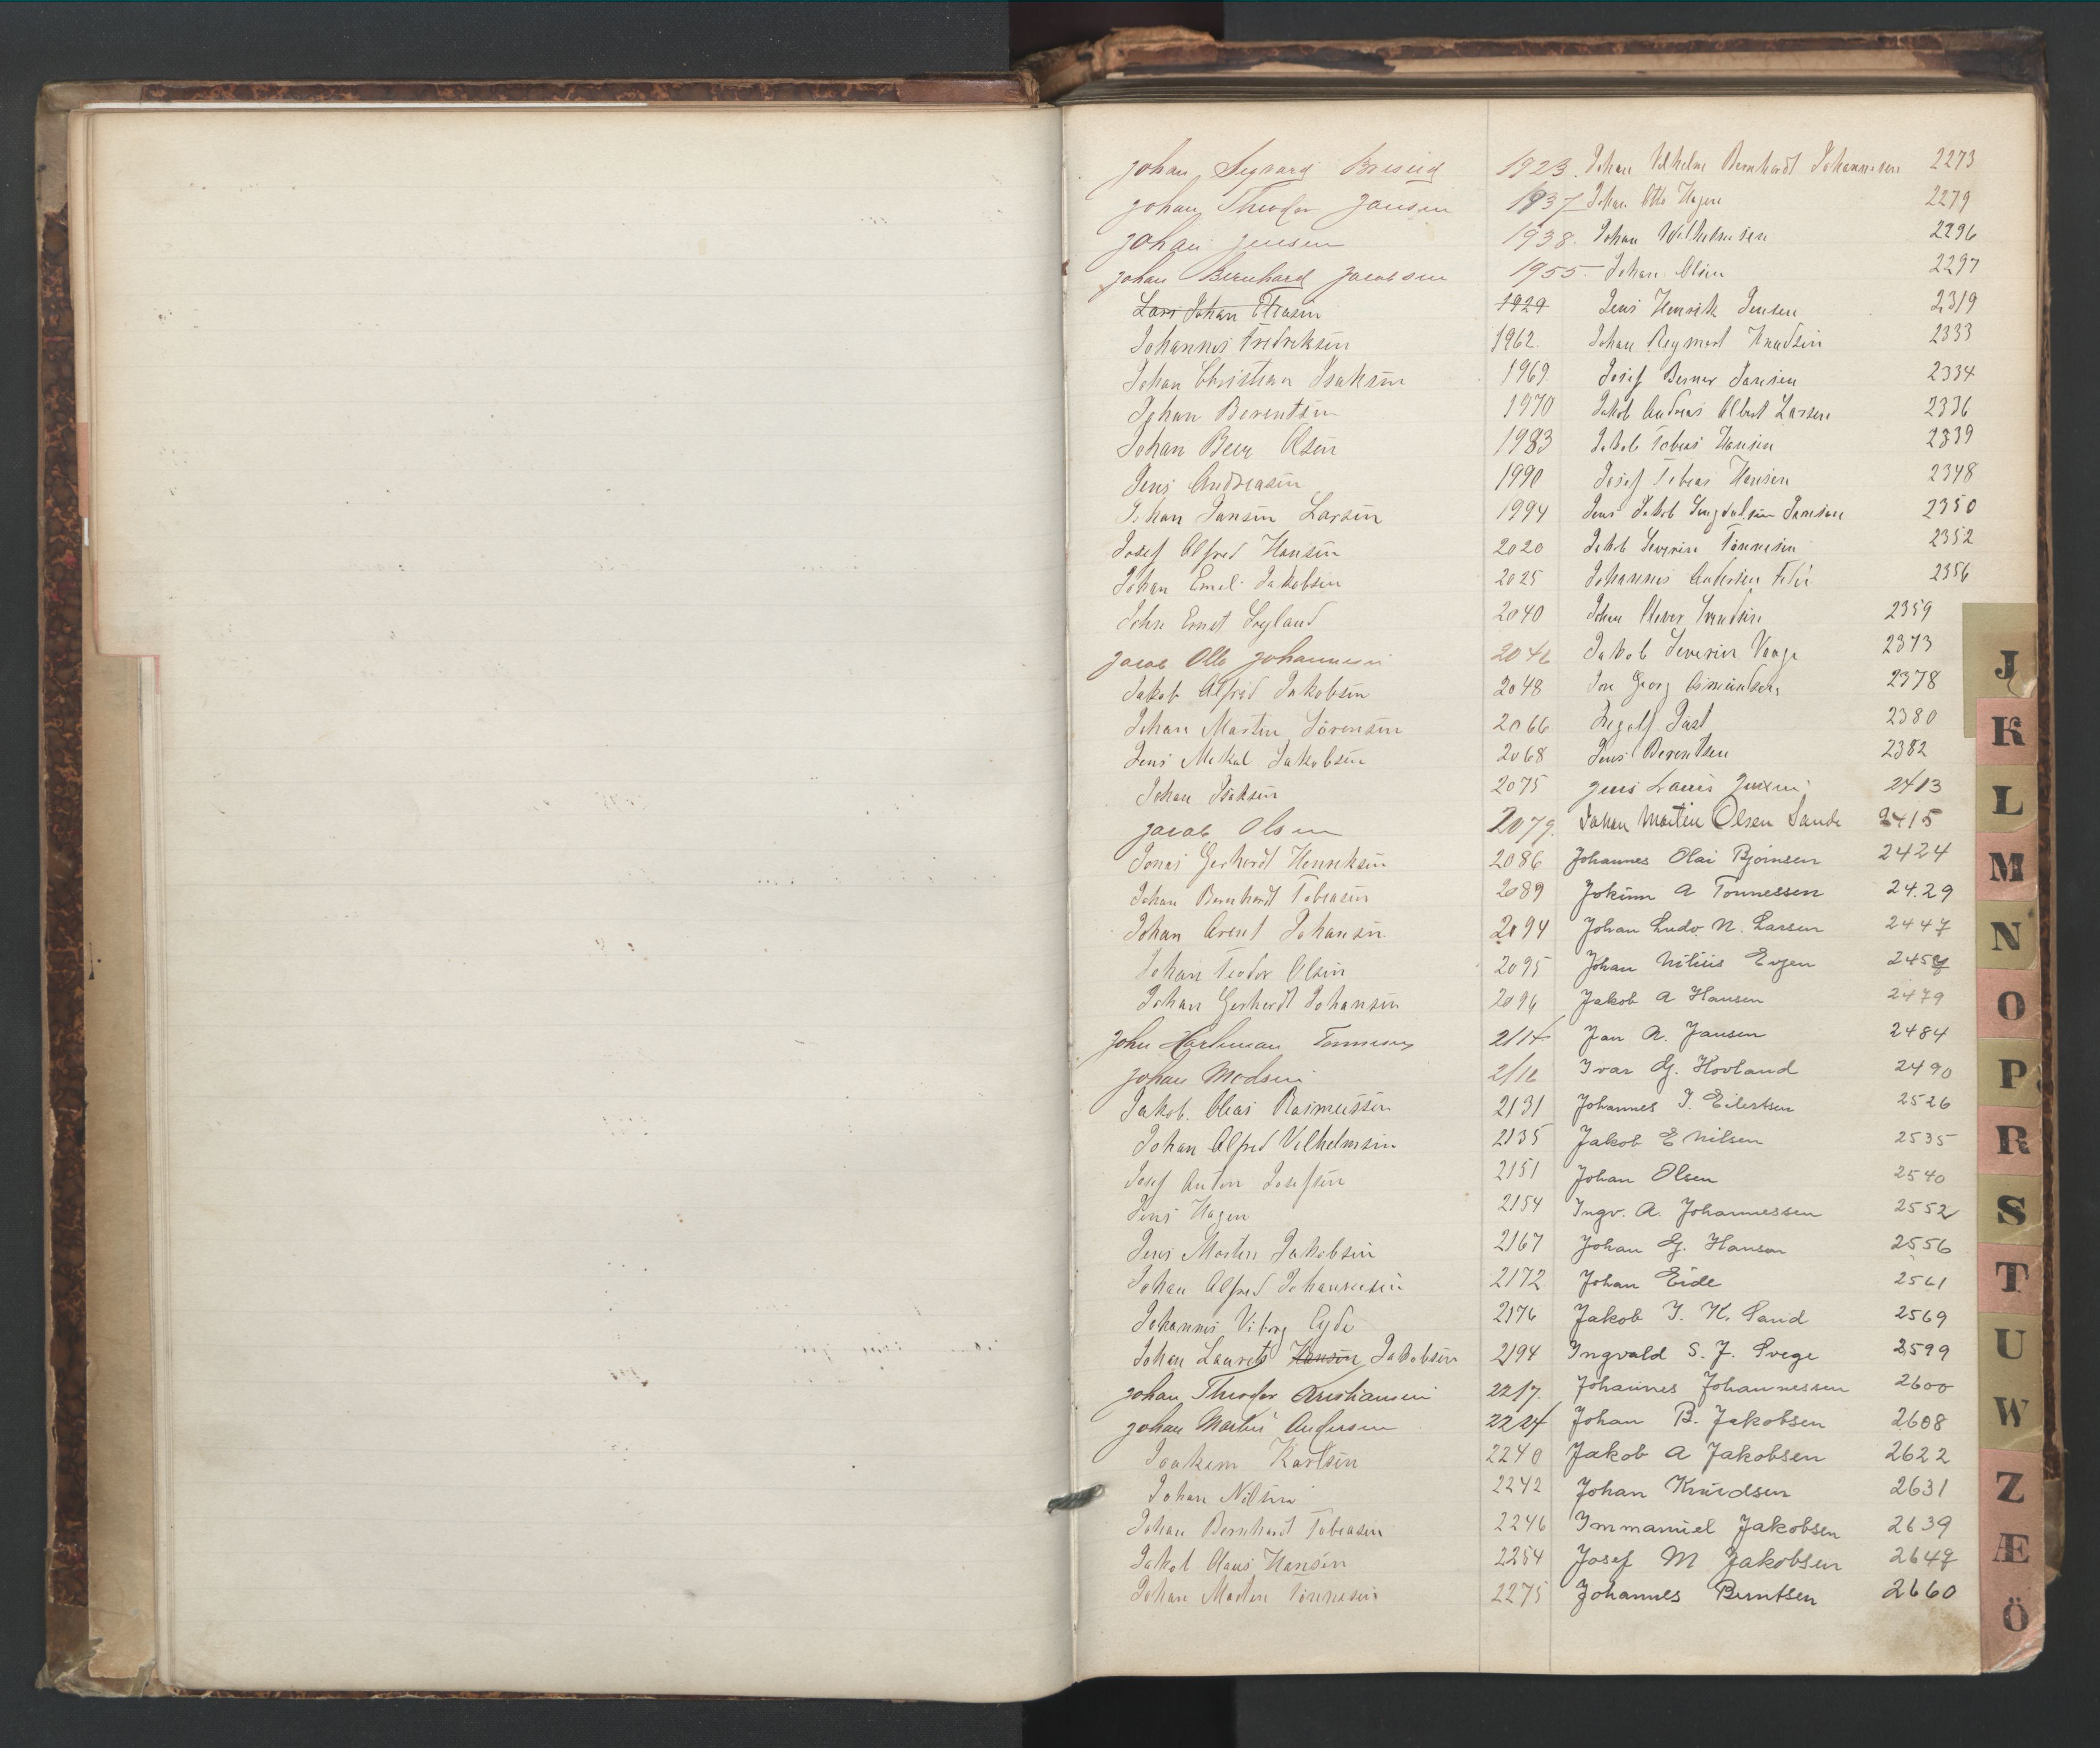 Johan Sigvard Breseid 1923.
Johan Theodor Jansen 1937
Johan Jensen 1938.
Johan Bernhard Jacobsen 1955
Lars Johan Eliasen 1929
Johannes Fredriksen 1962
Johan Christian Isaksen 1969
Johan Berentsen 1970
Johan Beer Olsen 1983
Jens Andreasen 1990
Johan Jansen Larsen 1994
Josef Alfred Hansen 2020
Johan Emil Jakobsen 2025
John Ernst Sogland 2040
Jacob Olb Johannesen 2046
Jakob Alfred Jakobsen 2048
Johan Martin Sörensen 2066
Jens Mekal Jakobsen 2068
Johan Isaksen 2075
Jacob Olsen 2079.
Jonas Gerhardt Henriksen 2086
Johan Bernhardt Tobiasen 2089
Johan Arent Johansen 2094
Johan Teodor Olsen 2095
Johan Gerhardt Johansen 2096
John Hartman Tönnesen 2114
Johan Madsen 2116
Jakob Oleas Rasmussen 2131
Johan Alfred Vilhelmsen 2135
Josef Anton Josefsen 2151
Jens Hagen 2154
Jens Martin Jakobsen 2167
Johan Alfred Johannesen 2172
Johannes Viborg Eyde 2176
Johan Laurets Hansen Jakobsen 2194
Johan Theodor Kristiansen 2217.
Johan Martin Andersen 2224
Joakim Karlsen 2240
Johan Nilsen 2242
Johan Bernhard Tobiasen 2246
Jakob Olaus Hansen 2254
Johan Martin Tönnesen 2275
Johan Vilhelm Bernhardt Johannesen 2273
Johan Otto Hagen 2279
Johan Vilhelmsen 2296
Johan Olsen 2297
Jens Henrik Jensen 2319
Johan Reymert Knudsen 2333
Josef Berner Jansen 2334
Jakob Andreas Albert Larsen 2336
Jakob Tobias Hansen 2339
Josef Tobias Hansen 2348
Jens Jakob Jansen 2350
Jakob Severin Tönnesen 2352
Johannes 2356
Johan 2359
Jakob Severin Vaage 2373
Jon Georg Asmundsen 2378
Ingolf Just 2380
Jens Berentsen 2382
Jens Lauis Jensen 2413
Johan Martin Olsen Sande 2415
Johannes Olai Bjornsen 2424
Jokim A Tonnessen 24.29
Johan Ludv. N. Larsen 2447
Johan Nilius Evjen 2457
Jakob A Hansen 2479
Jan A. Jansen 2484
Ivar G. Hovland 2490
Johannes J. Eilertsen 2526
Jakob E Nilsen 2535
Johan Olsen 2540
Ingv. A. Johannessen 2552
Johan G. Hansen 2556
Johan Eide 2561
Jakob J. K. Sand 2569
Ingvald S. J. Svege 2599
Johannes Johannessen 2600
Johan B. Jakobsen 2608
Jakob A Jakobsen 2622
Johan Knudsen 2631
Immanuel Jakobsen 2639
Josef M Jakobsen 2647
Johannes Berntsen 2660
J
K
L
M
N
O
P
R
S
T
U
W
Z
Æ
Ö